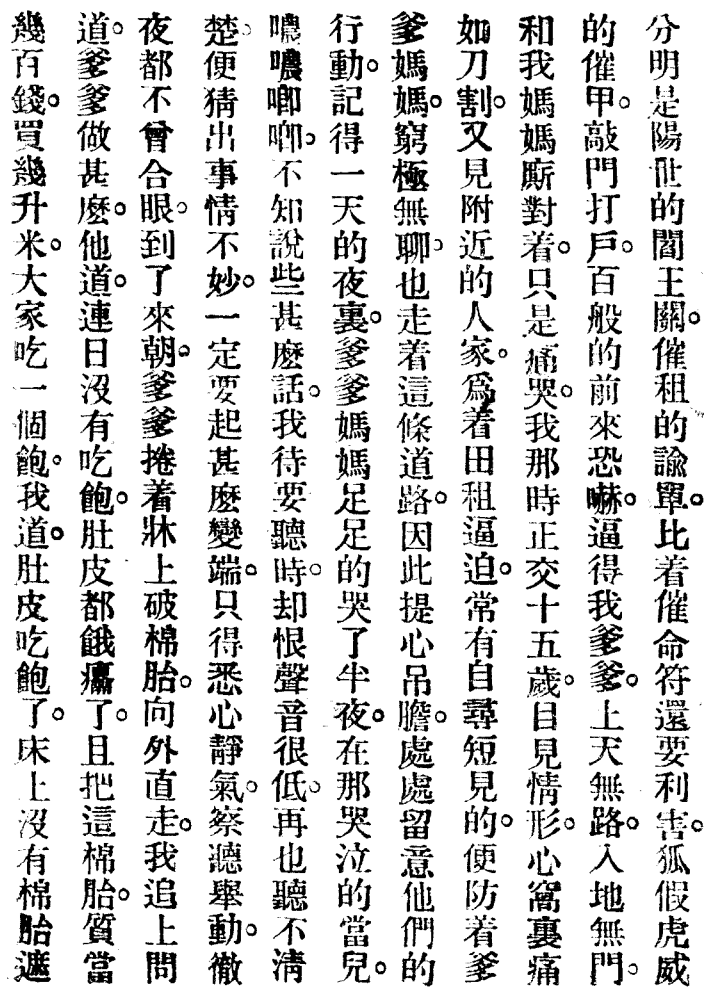 分明是陽世的閻王關。催租的諭單。比着催命符還要利害。狐假虎威
的催甲。敲門打戶。百般的前來恐嚇。逼得我爹爹。上天無路。入地無門。
和我媽媽廝對着。只是痛哭。我那時正交十五歲。目見情形。心窩裏痛
如刀割。又見附近的人家。爲着田租逼迫。常有自尋短見的。便防着爹
爹媽媽。窮極無聊。也走着這條道路。因此提心吊膽。處處留意他們的
行動。記得一天的夜裏。爹爹媽媽足足的哭了半夜。在那哭泣的當兒。
噥噥唧唧。不知說些甚麽話。我待要聽時。却恨聲音很低。再也聽不淸
楚。便猜出事情不妙。一定要起甚麽變端。只得悉心靜氣。察聽舉動。徹
夜都不曾合眼。到了來朝。爹爹捲着牀上破棉胎。向外直走。我追上問
道。爹爹做甚麽。他道。連日沒有吃飽。肚皮都餓癟了。且把這棉胎。質當
幾百錢。買幾升米。大家吃一個飽。我道。肚皮吃飽了。床上沒有棉胎遮